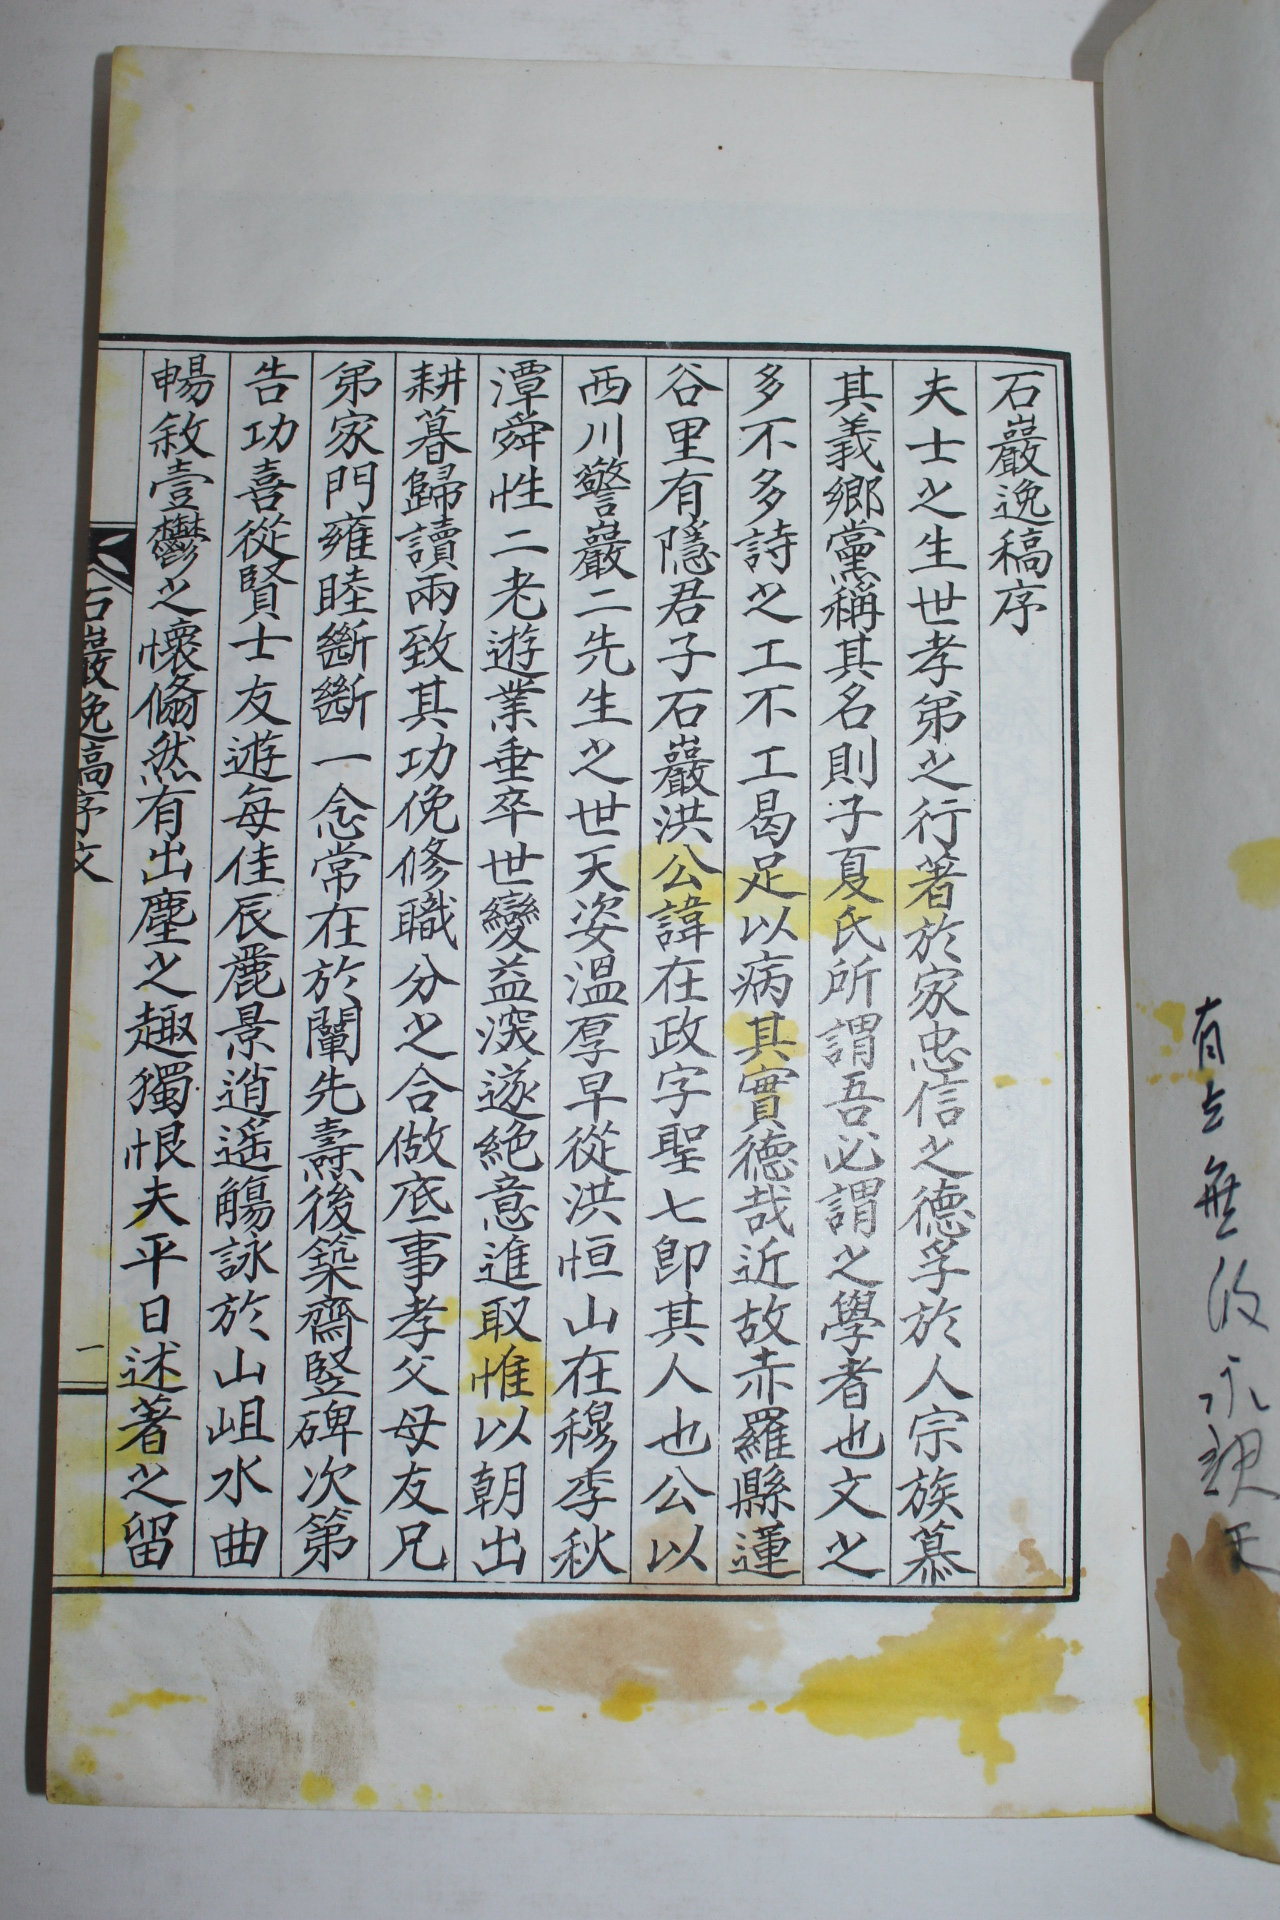 石巖逸稿序
夫士之生世孝弟之行著於家忠信之德孚於人宗族慕
其義鄉黨稱其名則子夏氏所謂吾必謂之學者也文之
多不多詩之工不工曷足以病其實德哉近故赤羅縣蓮
谷里有隱君子石巖洪公諱在政字聖七卽其人也公以
西川警巖二先生之世天姿溫厚早從洪恒山在穆李秋
潭舜性二老遊業垂卒世變益深遂絶意進取惟以朝出
耕暮歸讀兩致其功俛修職分之合做底事孝父母友兄
弟家門雍睦斷斷一念常在於闡先燾後築齋竪碑次第
告功喜從賢士友遊每佳辰麗景逍遥觴詠於山岨水曲
暢敘壹鬱之懷翛然有出塵之趣獨恨夫平日述著之留
石巖逸稿序文
一